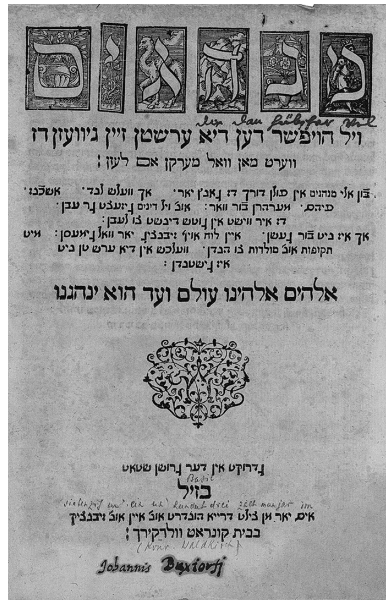 מנהגים
hübscher
ויל הויפשר דען דיא ערשטן זיין גיוועזן דז
ווערט מאן וואל מערקן אם לעזן :
בון אלי מנהגים אין פולן דורך דז גאנץ יאר . אך וועלש לנד . אשכנז .
פיהם . מערהרן בור וואר . אונ ויל דינים גיזעצט גר עבן .
דז איר ווישט אין גוטש דינשט צו לעבן :
אך איז ניט בור געשן . איין לוח אויף זיבנציג יאר וואל גימעסן . מיט
תקופות אונ מולדות צו הנדן . וועלכש אין דיא ערש טן ניט
איז גישטנדן :
אלהים אלהינו עולם ועד הוא ינהגנו
גדרוקט אין דער גרושן שטאט
Basel
בזיל
hundert drei
אים יאר מן צילט דרייא הונדרט אונ איין אונ זיבנציק
בבית קונראט וולדקירך :
(Konr. Waldkirch)
Johannis Buxtorfj